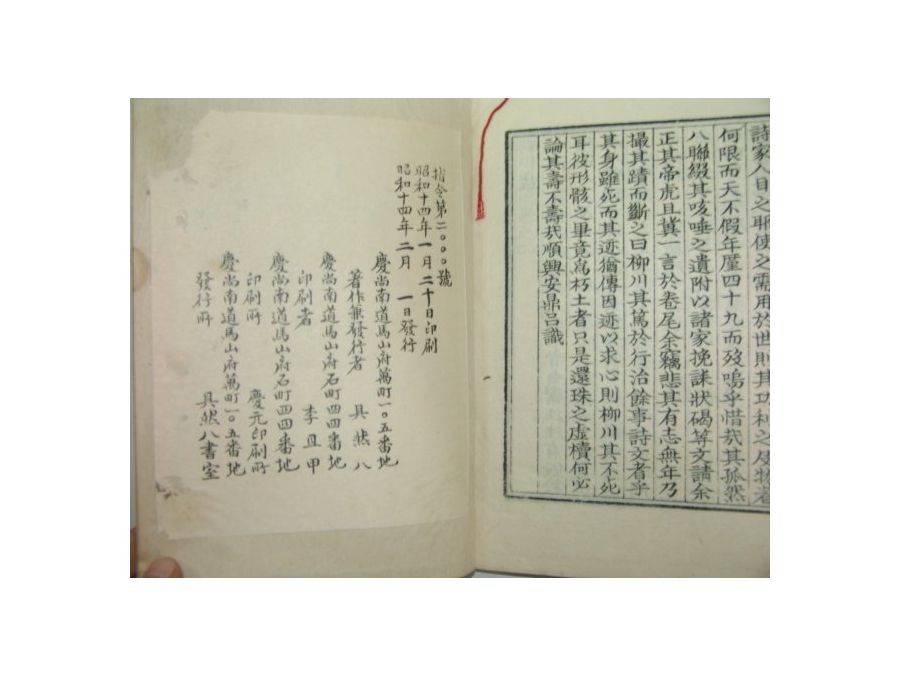 詩家人目之耶使之需用於世則其功利之及物者
何限而天不假年厪四十九而歿嗚乎惜哉其孤然
八聯綴其咳唾之遺附以諸家挽誄狀碣等文請余
正其帝虎且冀一言於卷尾余竊悲其有志無年乃
撮其蹟而斷之曰柳川其篤於行治餘事詩文者乎
其身雖死而其迹猶傳因迹以求心則柳川其不死
耳彼形骸之畢竟爲朽土者只是還珠之虛櫝何必
論其壽不壽哉順興安鼎呂識
指令第二〇〇〇號
昭和十四年一月二十日印刷
昭和十四年二月 一日發行
慶尚南道馬山府萬町一〇五番地
著作兼發行者 具然八
慶尚南道馬山府石町四四番地
印刷者 李且甲
慶尚南道馬山府石町四四番地
印刷所 慶元印刷所
慶尚南道馬山府萬町一〇五番地
發行所 具然八書室